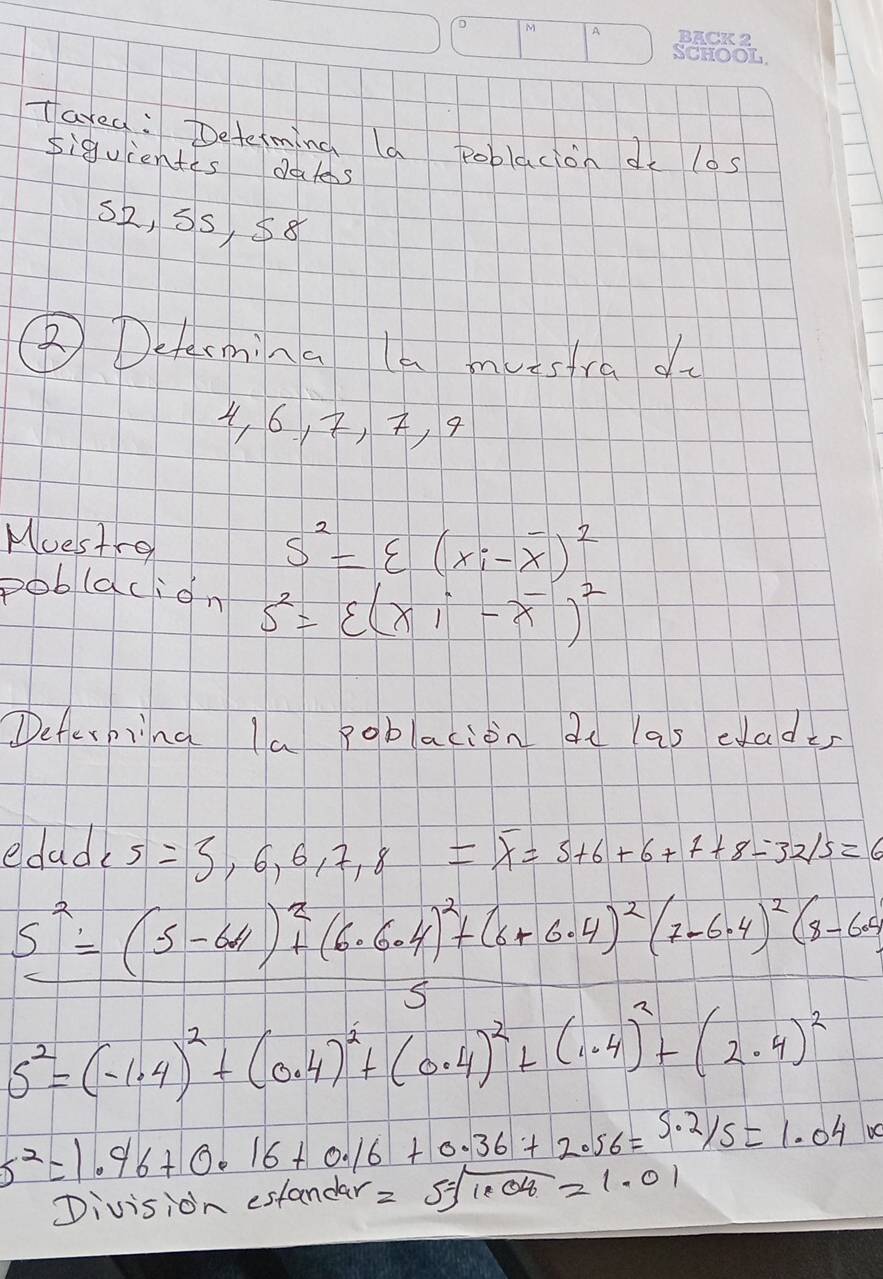 D M A
BACK 2
SCHOOL.
Tarea: Determina la población de los
siguientes datos
52, 55, 58
② Determina la muestra de
4, 6, 7, 7, 9
Muestra S² = Ɛ (xi - x̄)²
población S² = Ɛ(xi - x̄)²
Determina la población de las edades
edades = 5, 6, 6, 7, 8 = x̄ = 5+6+6+7+8=32/5=6
S² = (5-6.4)² + (6.6.4)² + (6+6.4)² (7-6.4)² (8-6.4
5
S² = (-1.4)² + (0.4)² + (0.4)² + (1.4)² + (2.4)²
S² = 1.96 + 0.16 + 0.16 + 0.36 + 2.56 = 5.2/5 = 1.04
División estandar = S=√1.04 = 1.01